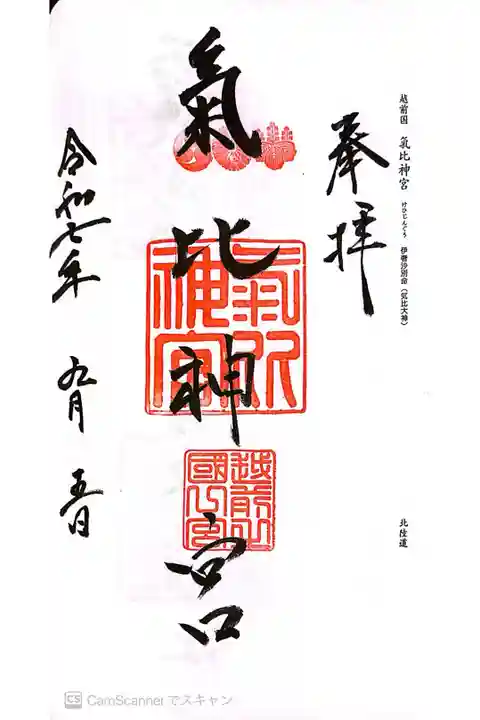 越前国 氣比神宮 けひじんぐう 伊奢沙別命（気比大神）
北陸道
奉拝
氣比神宮
氣比神宮
越前之国一宮
令和七年 九月 五日
CS CamScanner でスキャン